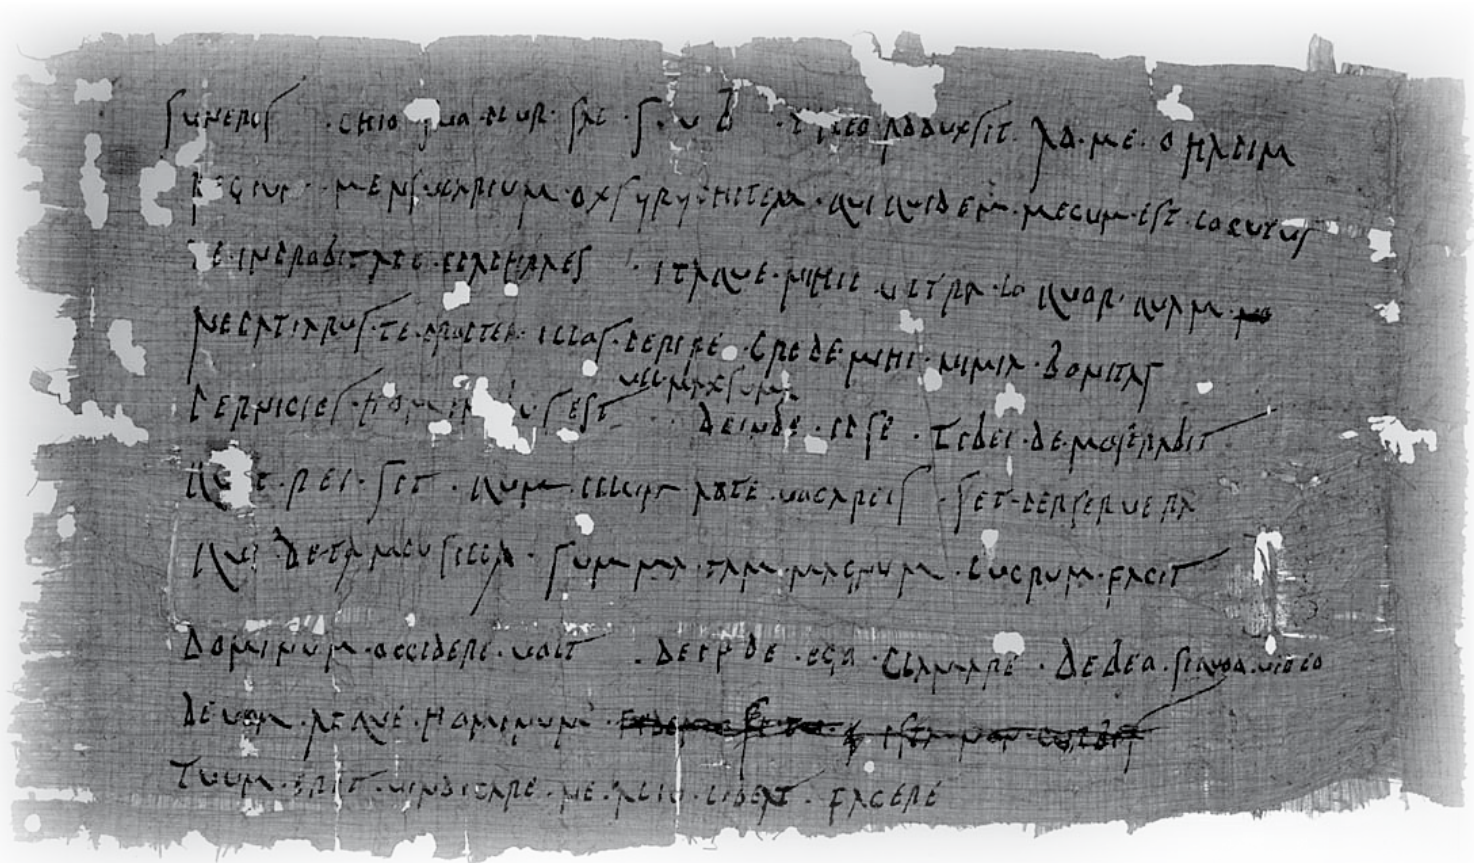 Suneros · Chio · suo · plur · sal · s · v · b · Theo adduxsit · ad · me · Ohapim
regium · mensularium · Oxsyrychitem · qui quidem · mecum · est · locutus
de · inprobitate · Epaphraes · itaque · nihil · ultra · loquor · quam · no
ne patiarus · te · propter · illos · perire · crede · mihi · nimia · bonitas
pernicies · hominibus est vel maxsuma deinde · ipse · tibei · de mostrabit
quit · rei · sit · qum · illum · ad te · vocareis · set · perservera
qui de tam pusilla · summa · tam · magnum · lucrum · facit
dominum · occidere · volt · deinde · ego · clamare · debeo · siquod · video
devom · atque · hominum · si ista non
tuum · erit · vindicare · ne · alio · libeat · facere